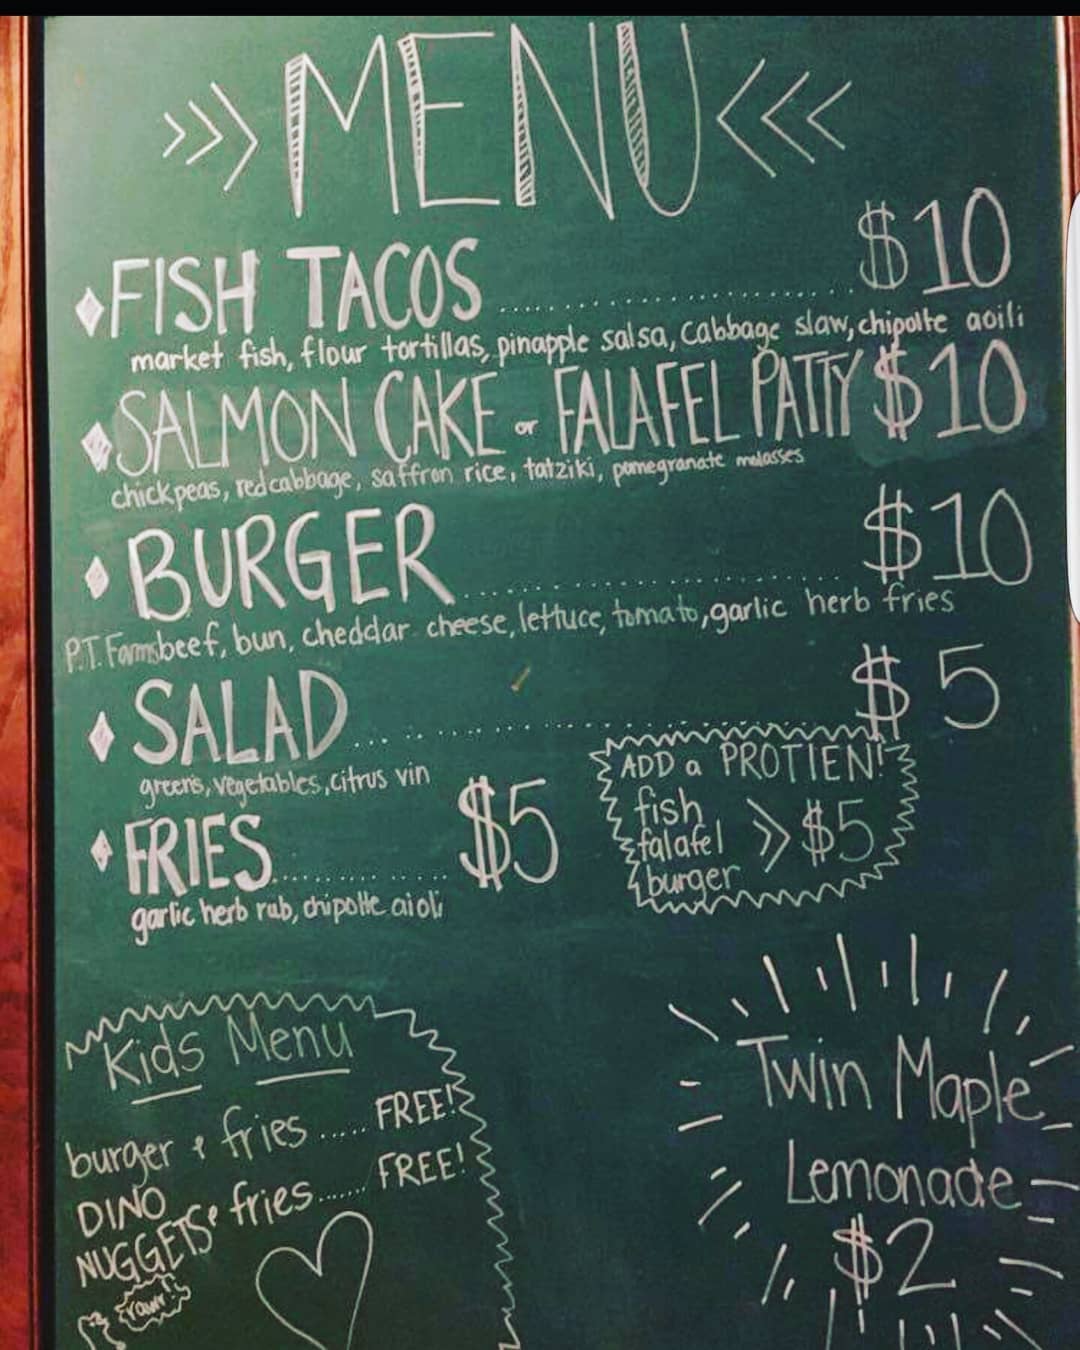 >>> MENU <<<
FISH TACOS .......................... $10
market fish, flour tortillas, pinapple salsa, cabbage slaw, chipolte aoili
SALMON CAKE or FALAFEL PATTY $10
chickpeas, red cabbage, saffron rice, tatziki, pomegranate molasses
BURGER .......................... $10
P.T. Farms beef, bun, cheddar cheese, lettuce, tomato, garlic herb fries
SALAD .......................... $5
greens, vegetables, citrus vin
ADD a PROTIEN!
fish
falafel >> $5
burger
FRIES .............. $5
garlic herb rub, chipotle aioli
Kids Menu
burger & fries ..... FREE!
DINO
NUGGETS & fries ....... FREE!
rawr!
Twin Maple
Lemonade
$2